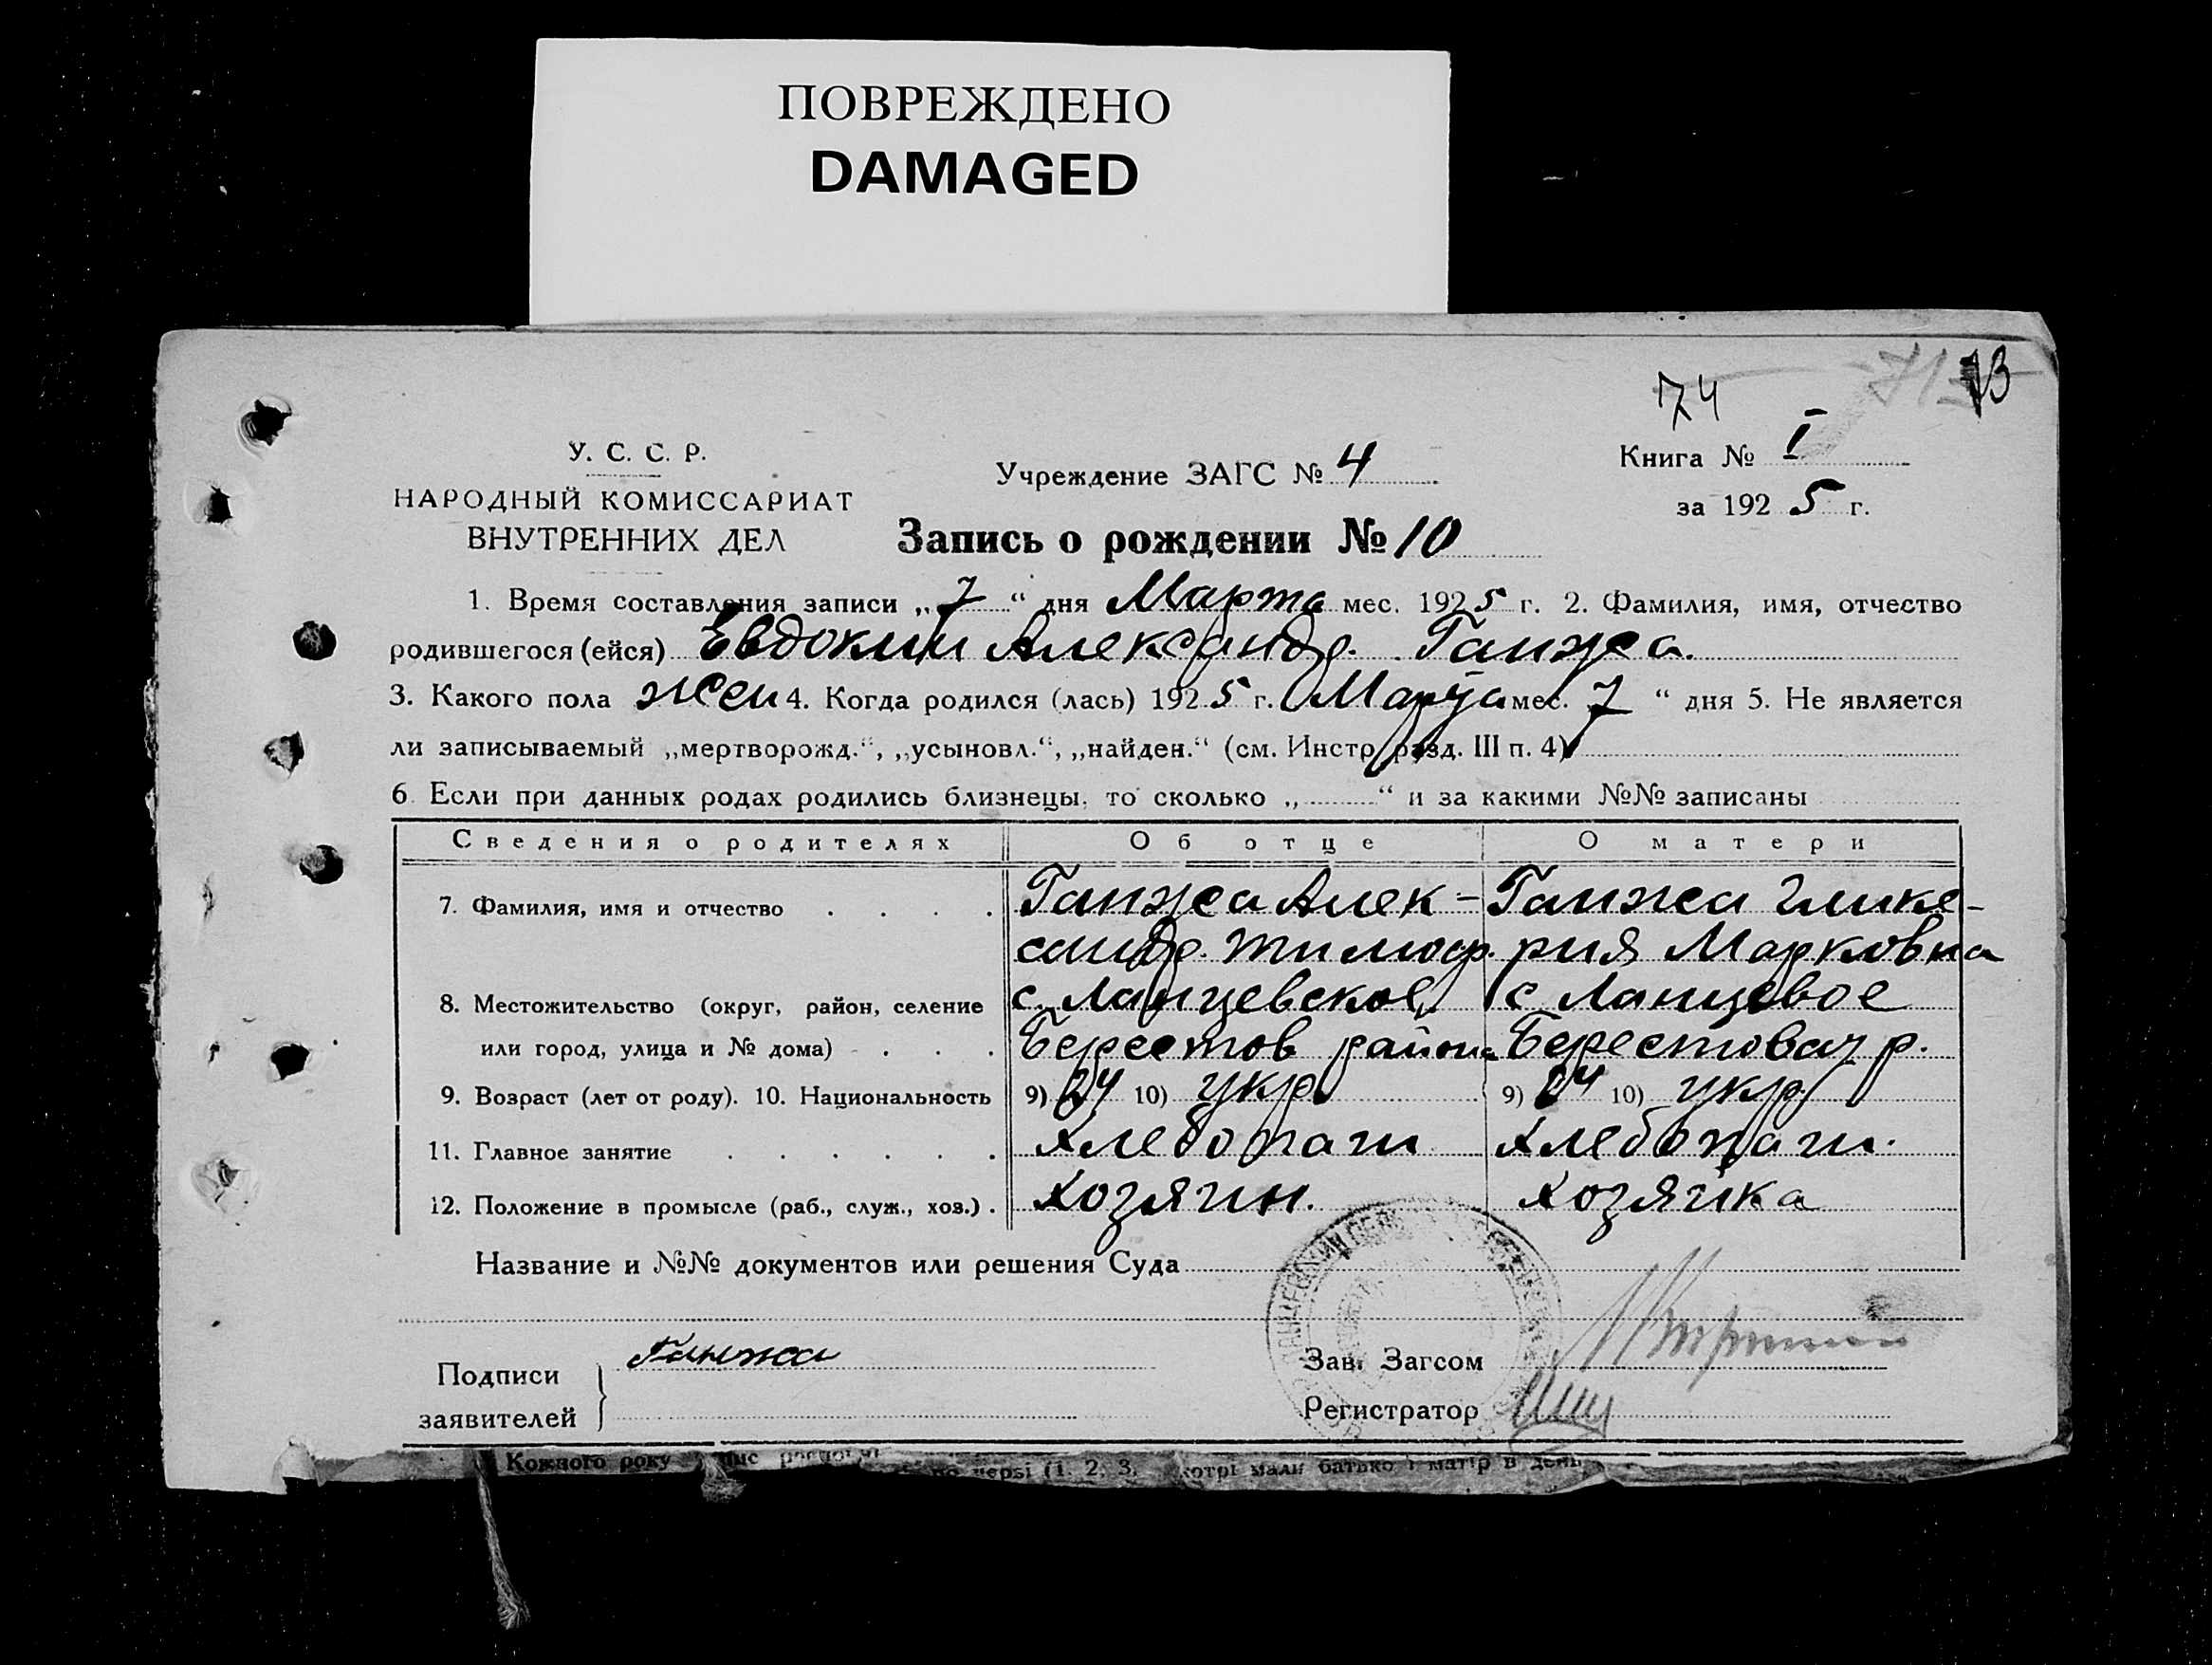 ПОВРЕЖДЕНО
DAMAGED
74
73
У. С. С. Р.
НАРОДНЫЙ КОМИССАРИАТ
ВНУТРЕННИХ ДЕЛ
Учреждение ЗАГС № 4
Книга № I
за 1925 г.
Запись о рождении № 10
1. Время составления записи „ 7 “ дня Марта мес. 1925 г. 2. Фамилия, имя, отчество
родившегося (ейся) Александр. Ганжа.
3. Какого пола жен 4. Когда родился (лась) 1925 г. Марта мес. 7 “ дня 5. Не является
ли записываемый „мертворожд.“, „усыновл.“, „найден.“ (см. Инстр. разд. III п. 4)
6. Если при данных родах родились близнецы, то сколько „ “ и за какими №№ записаны
Сведения о родителях Об отце О матери
7. Фамилия, имя и отчество . . . . Ганжа Алек- Ганжа Глике-
сандр. Тимоф. рия Марковна
8. Местожительство (округ, район, селение с. Ланцевское с Ланцевое
или город, улица и № дома) . . . Берестов района Берестовог р.
9. Возраст (лет от роду). 10. Национальность 9) 24 10) укр 9) 24 10) укр
11. Главное занятие . . . . . . Хлебопаш Хлебопаш.
12. Положение в промысле (раб., служ., хоз.) . Хозяин. Хозяйка
Название и №№ документов или решения Суда
Подписи
заявителей
Ганжа
Зав. Загсом
Регистратор
Кожного року
(1. 2. 3. котрі мали батько і матір в день